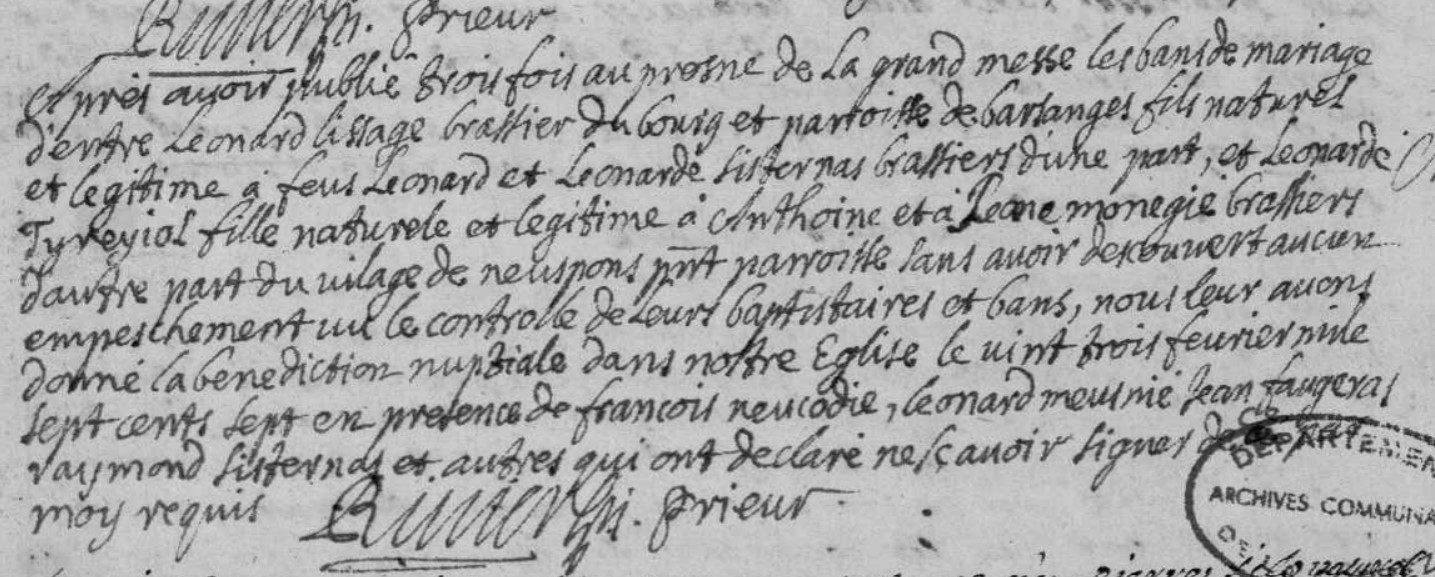 prieur
Apres avoir publié trois fois au prosne de La grand messe les bans de mariage
d'entre Leonard lissage brassier du bourg et parroisse de barsanges fils naturel
et legitime a feus Leonard et Leonarde sisternas brassiers d'une part, et Leonarde
Tyreyiol fille naturele et legitime a Anthoine et à Jeane monegie brassiers
d'autre part du vilage de neuspons pnt parroisse sans avoir descouvert aucun
empeschement vu le controlle de Leurs baptistaires et bans, nous leur avons
donné la benediction nuptiale dans nostre Eglise le vint trois fevrier mile
sept cents sept en presence de francois neucodie, leonard meusnie Jean faugeras
raymond sisternas et autres qui ont declaré ne sçavoir signer de ce par
moy requis prieur
DEPARTEMEN
ARCHIVES COMMUNA
DE